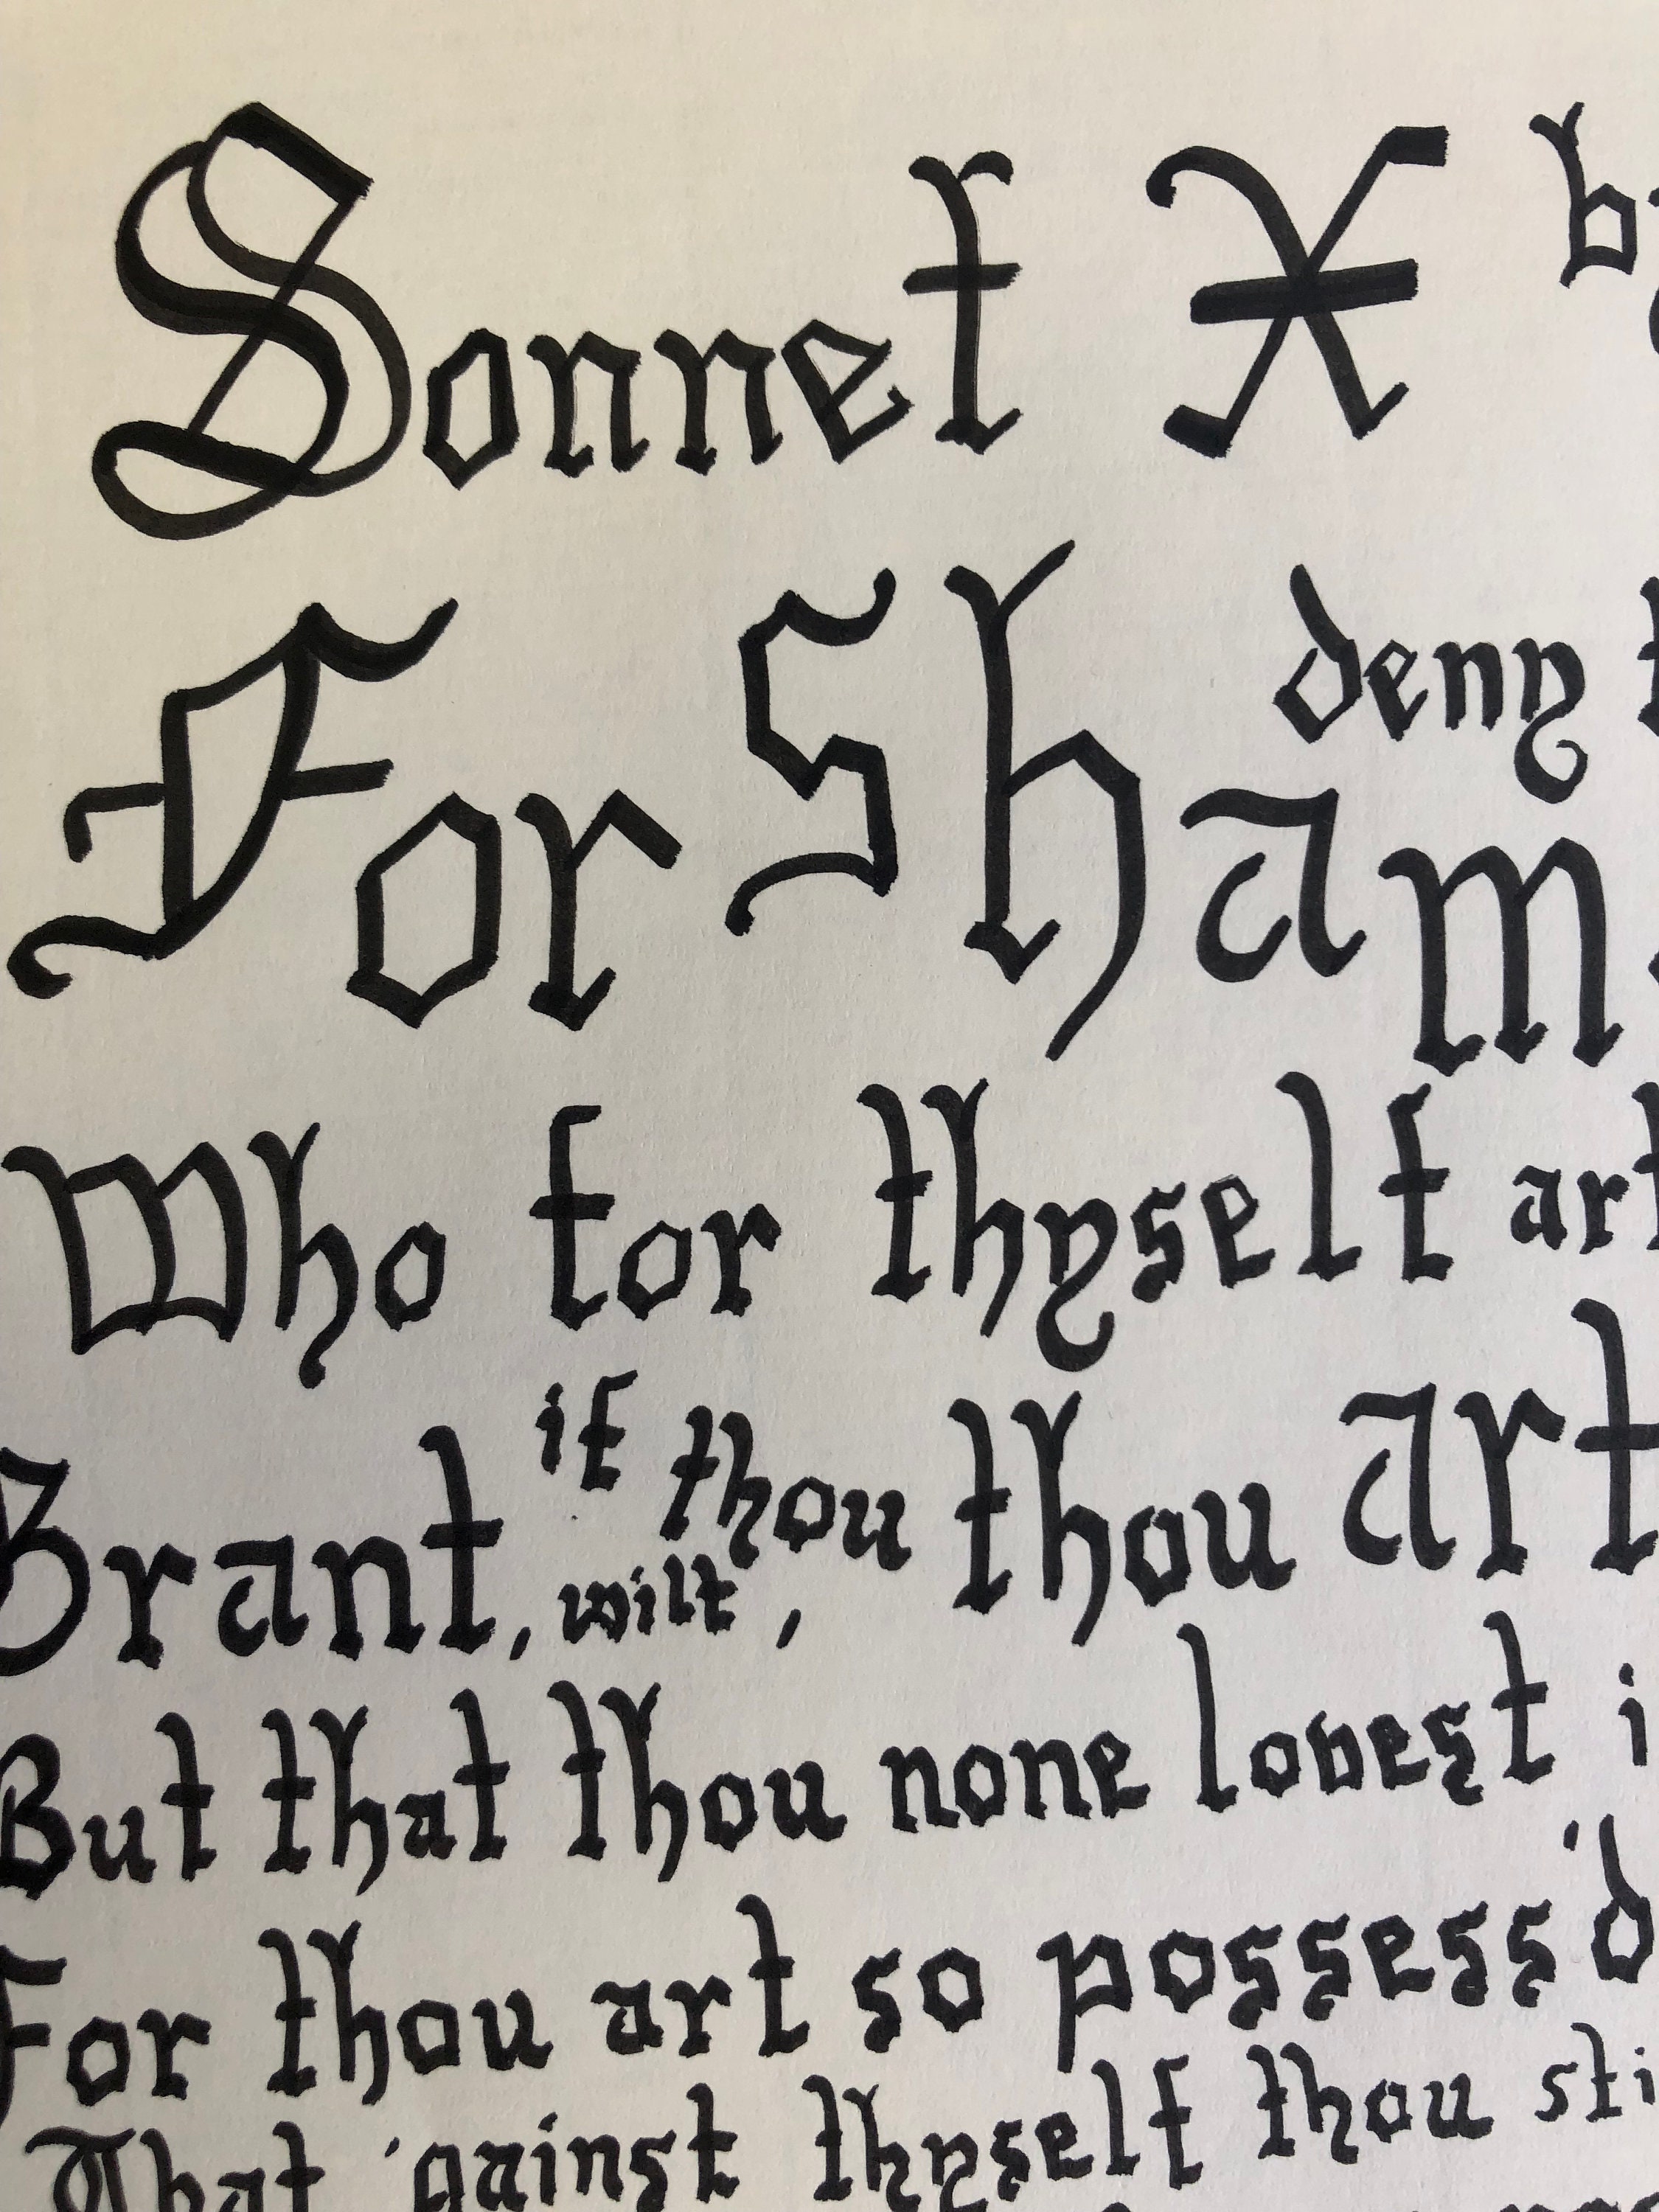 Sonnet X by
For Sham deny t
Who for thyself art
Grant, if thou wilt, thou art
But that thou none lovest i
For thou art so possess'd
That 'gainst thyself thou sti